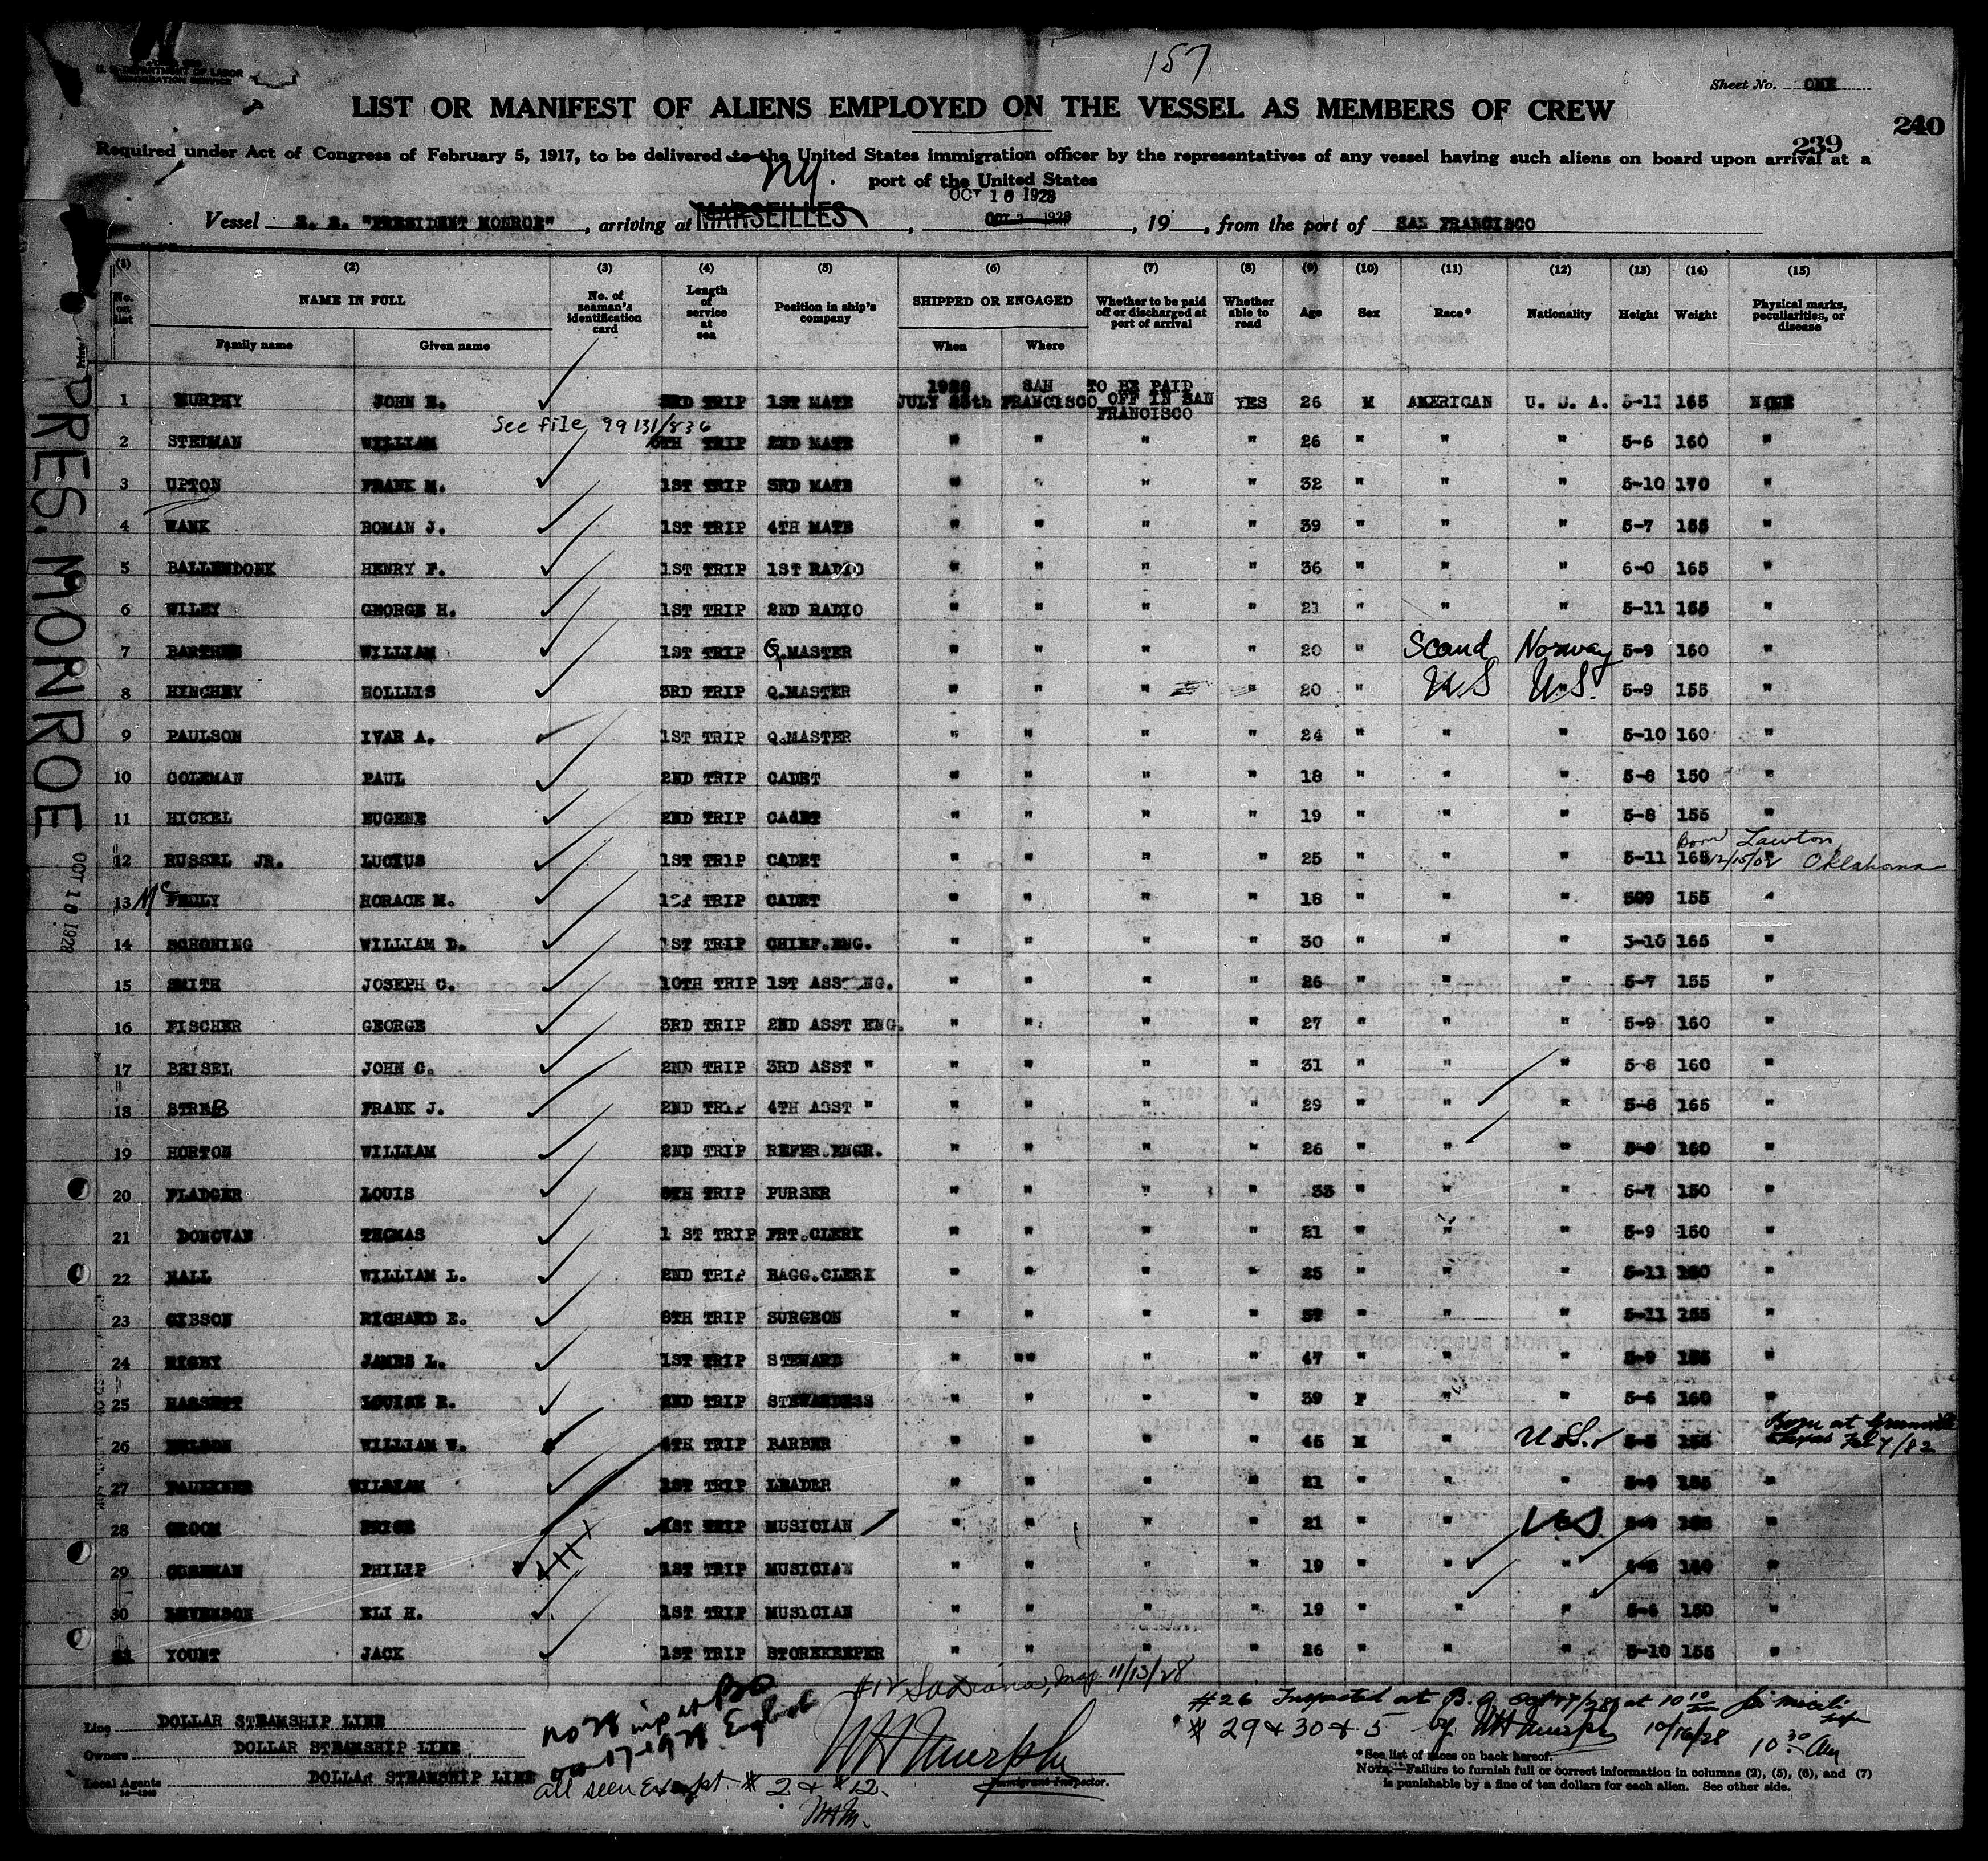 157
U. S. DEPARTMENT OF LABOR
IMMIGRATION SERVICE
Sheet No. ONE
LIST OR MANIFEST OF ALIENS EMPLOYED ON THE VESSEL AS MEMBERS OF CREW
239 240
Required under Act of Congress of February 5, 1917, to be delivered to the United States immigration officer by the representatives of any vessel having such aliens on board upon arrival at a
port of the United States
N.Y. OCT 16 1928
Vessel S. S. "PRESIDENT MONROE", arriving at MARSEILLES, OCT 2 1928, 19 , from the port of SAN FRANCISCO
(1) (2) (3) (4) (5) (6) (7) (8) (9) (10) (11) (12) (13) (14) (15)
No. on list NAME IN FULL Family name Given name No. of seaman's identification card Length of service at sea Position in ship's company SHIPPED OR ENGAGED When Where Whether to be paid off or discharged at port of arrival Whether able to read Age Sex Race* Nationality Height Weight Physical marks, peculiarities, or disease
1 MURPHY JOHN E. 3RD TRIP 1ST MATE 1928 JULY 25th SAN FRANCISCO TO BE PAID OFF IN SAN FRANCISCO YES 26 M AMERICAN U. S. A. 5-11 165 NONE
See file 99131/836
2 STEDMAN WILLIAM 5TH TRIP 2ND MATE " " " " 26 " " " 5-6 160 "
3 UPTON FRANK M. 1ST TRIP 3RD MATE " " " " 32 " " " 5-10 170 "
4 WANK ROMAN J. 1ST TRIP 4TH MATE " " " " 39 " " " 5-7 155 "
5 BALLENDONK HENRY F. 1ST TRIP 1ST RADIO " " " " 36 " " " 6-0 165 "
6 WILEY GEORGE H. 1ST TRIP 2ND RADIO " " " " 21 " " " 5-11 155 "
7 WILLIAM 1ST TRIP Q.MASTER " " " " 20 " Scand Norway 5-9 160 "
8 HINCHEY HOLLLIS 3RD TRIP Q.MASTER " " " " 20 " US U.S. 5-9 155 "
9 PAULSON IVAR A. 1ST TRIP Q.MASTER " " " " 24 " " " 5-10 160 "
10 COLEMAN PAUL 2ND TRIP CADET " " " " 18 " " " 5-8 150 "
11 HICKEL EUGENE 2ND TRIP CADET " " " " 19 " " " 5-8 155 "
12 RUSSEL JR. LUCIUS 1ST TRIP CADET " " " " 25 " " " 5-11 165 " Born Lawton, 12/15/02 Oklahoma
13 Mc FEELY HORACE M. 1ST TRIP CADET " " " " 18 " " " 509 155 "
14 SCHONING WILLIAM D. 1ST TRIP CHIEF.ENG. " " " " 30 " " " 5-10 165 "
15 SMITH JOSEPH C. 10TH TRIP 1ST ASST ENG. " " " " 26 " " " 5-7 155 "
16 FISCHER GEORGE 3RD TRIP 2ND ASST ENG. " " " " 27 " " " 5-9 160 "
17 BEISEL JOHN C. 2ND TRIP 3RD ASST " " " " " 31 " " " 5-8 160 "
18 STREB FRANK J. 2ND TRIP 4TH ASST " " " " " 29 " " " 5-8 165 "
19 HORTON WILLIAM 2ND TRIP REFER.ENGR. " " " " 26 " " " 5-9 160 "
20 FLADGER LOUIS 8TH TRIP PURSER " " " " 33 " " " 5-7 150 "
21 DONOVAN THOMAS 1 ST TRIP FRT.CLERK " " " " 21 " " " 5-9 150 "
22 HALL WILLIAM L. 2ND TRIP BAGG.CLERK " " " " 25 " " " 5-11 "
23 GIBSON RICHARD E. 8TH TRIP SURGEON " " " " " " " 5-11 155 "
24 RIGBY JAMES L. 1ST TRIP STEWARD " " " " 47 " " " 5-9 "
25 HASSETT LOUISE E. 2ND TRIP STEWARDESS " " " " 39 F " " 5-6 160 "
26 NELSON WILLIAM W. 4TH TRIP BARBER " " " " 45 M " U.S. Born at Greenville Texas Feb 7/82
27 FAULKNER WILLIAM 1ST TRIP LEADER " " " " 21 " " " "
28 CROOM 1ST TRIP MUSICIAN " " " " 21 " " US "
29 PHILIP 1ST TRIP MUSICIAN " " " " 19 " " " "
30 ELI H. 1ST TRIP MUSICIAN " " " " 19 " " " 5-6 150 "
31 YOUNT JACK 1ST TRIP STOREKEEPER " " " " 26 " " " 5-10 155 "
PRES. MONROE
OCT 16 1928
11/13/28
Line DOLLAR STEAMSHIP LINE
Owners DOLLAR STEAMSHIP LINE
Local Agents DOLLAR STEAMSHIP LINE
No 28 insp at
All seen Except # 2 & # 12.
Immigrant Inspector.
#26 Inspected at B.O. at 10
# 29 & 30 & 5 by 10/16/28 10 30 AM
*See list of races on back hereof.
NOTE.—Failure to furnish full or correct information in columns (2), (5), (6), and (7)
is punishable by a fine of ten dollars for each alien. See other side.